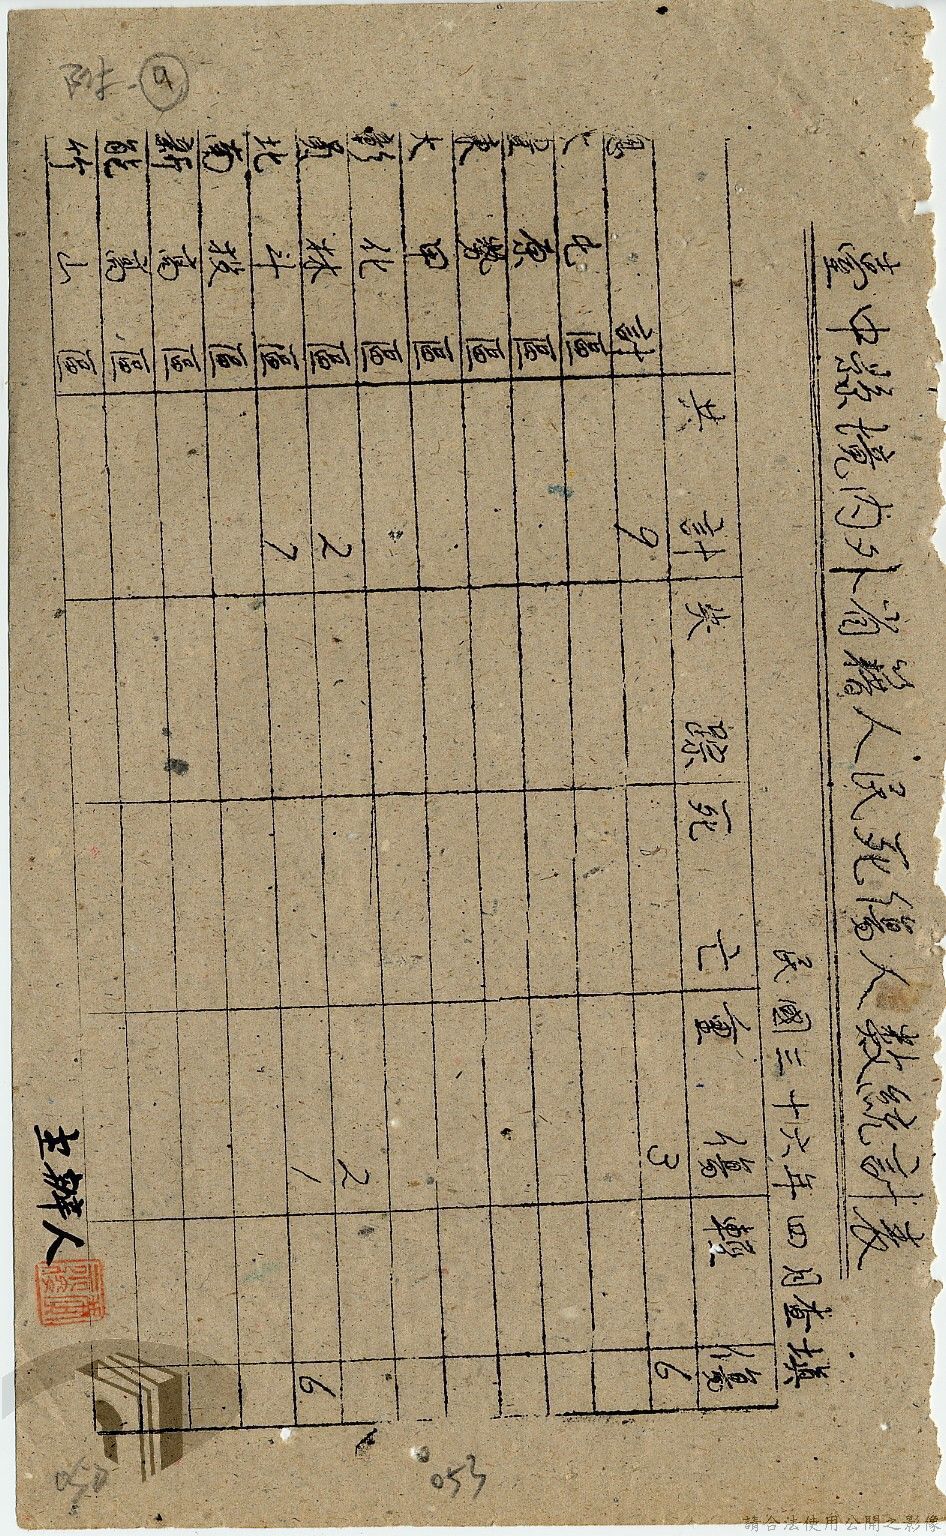 附 9
臺中縣境內外省籍人民死傷人數統計表
民國三十六年四月查填
共計 失踪 死亡 重傷 輕傷
總計 9 3 6
大屯區
豐原區
東勢區
大甲區
彰化區
員林區 2 2
北斗區 7 1 6
南投區
新高區
能高區
竹山區
主辦人
053
請合法使用公開之影像